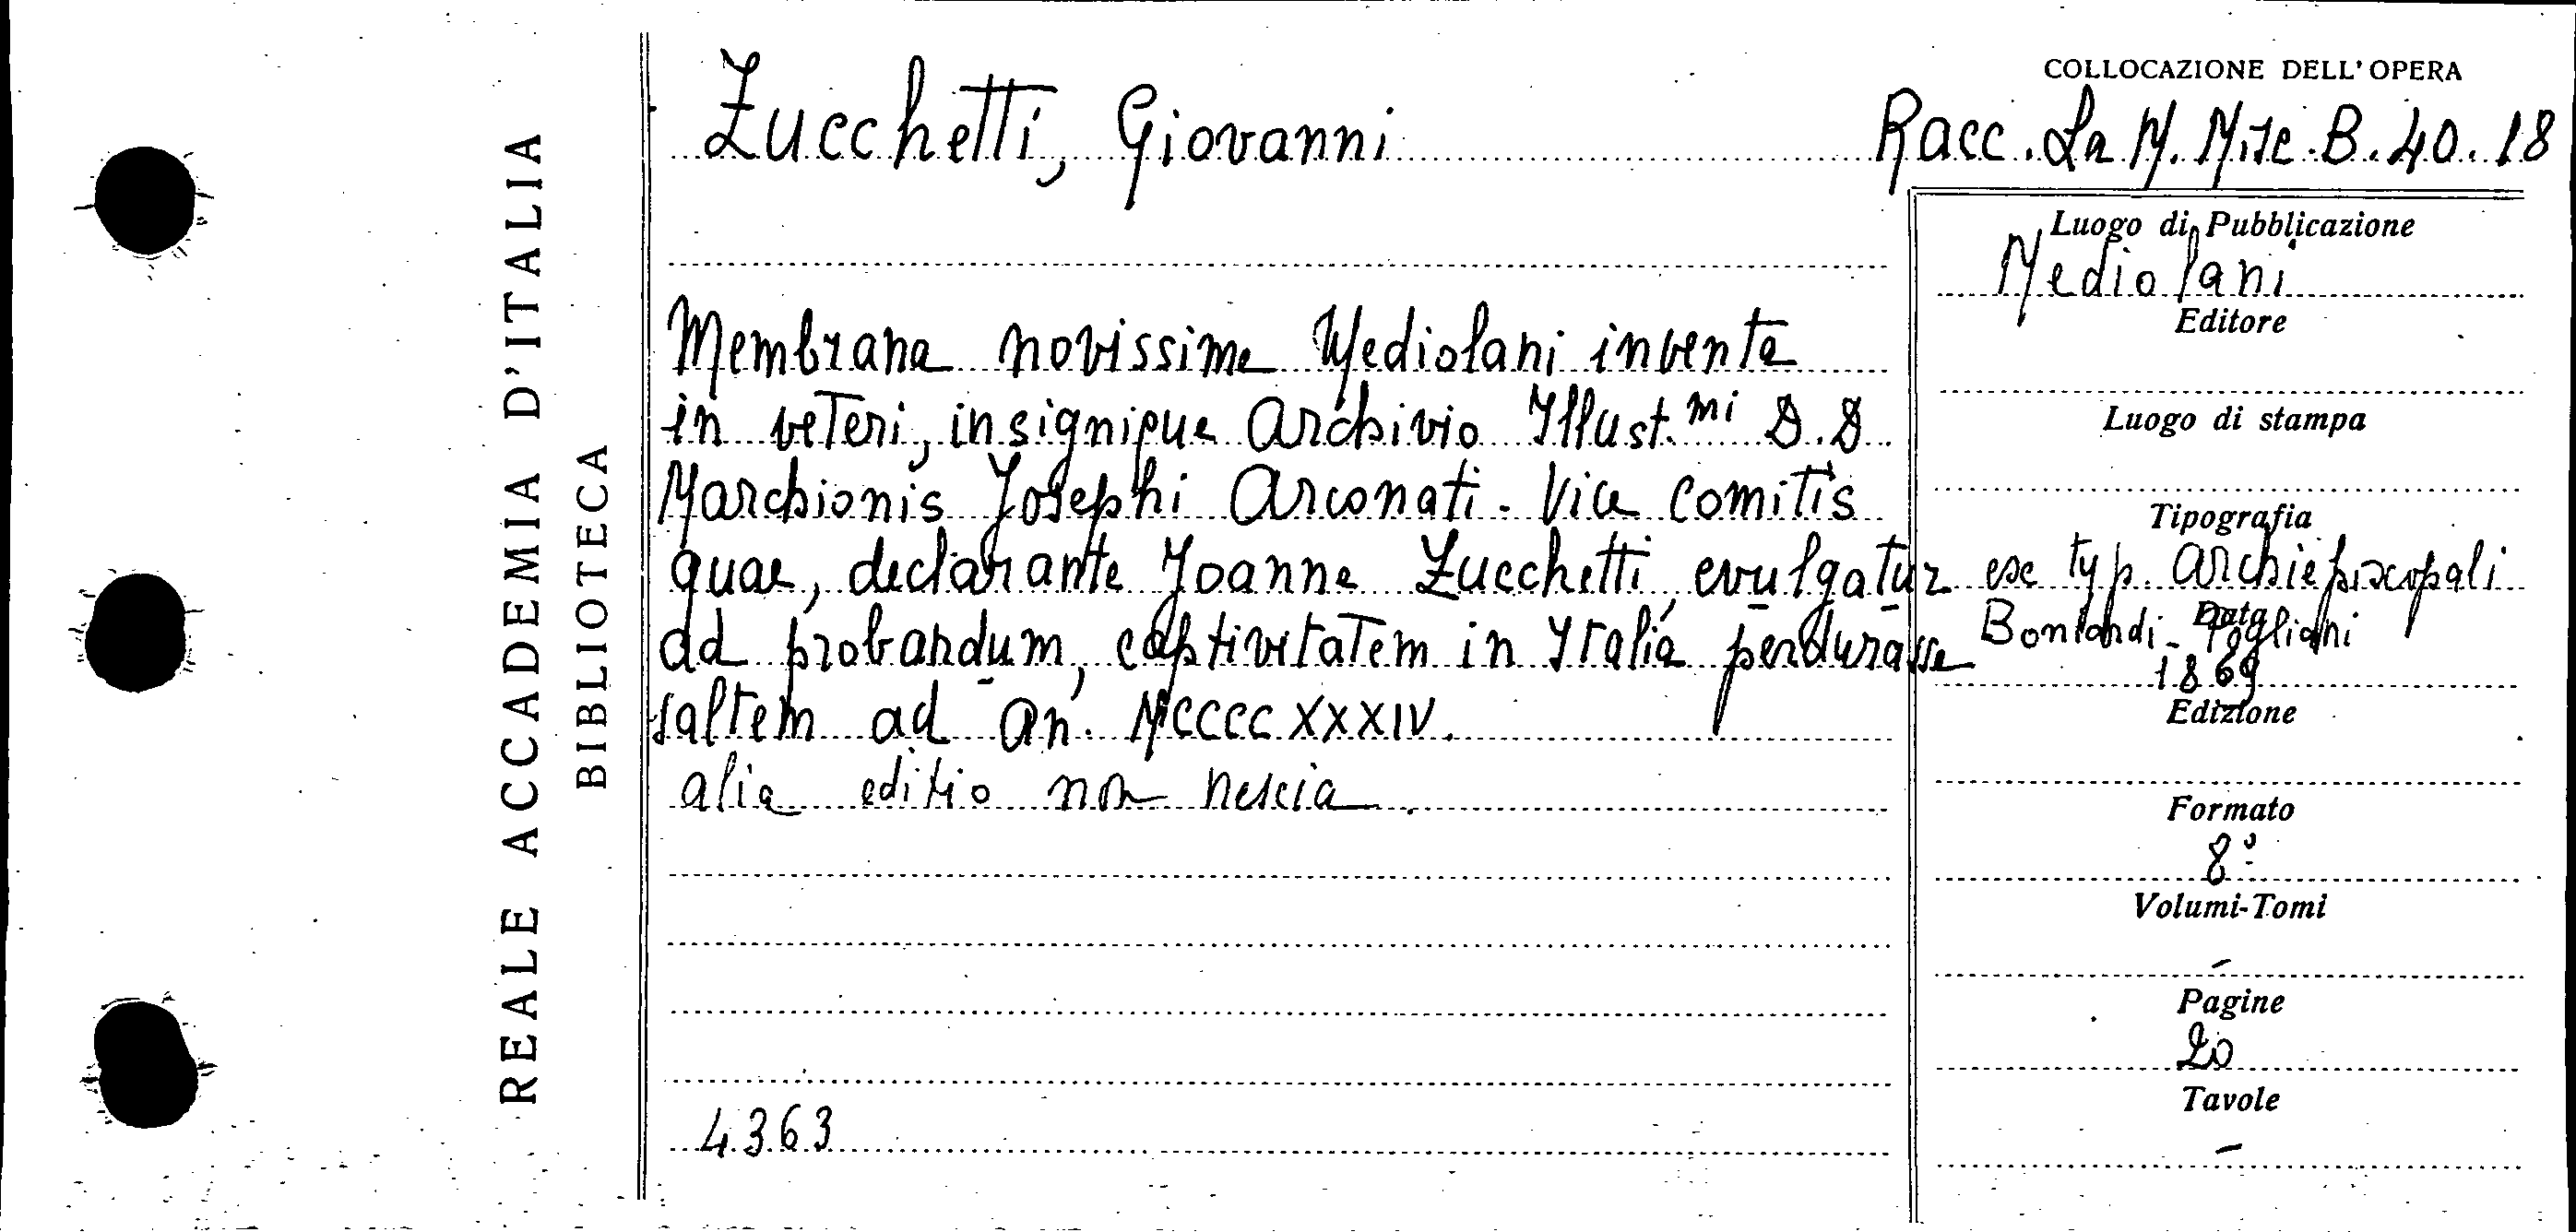 REALE ACCADEMIA D'ITALIA
BIBLIOTECA
Zucchetti, Giovanni
COLLOCAZIONE DELL'OPERA
Racc. La M. Misc. B. 40. 18
Membrana novissime Mediolani inventa
in veteri, insignique Archivio Illust.mi D.D
Marchionis Josephi Arconati-Vice comitis
quae, declarante Joanne Zucchetti, evulgatur
ad probandum, captivitatem in Italia perdurasse
saltem ad an. MCCCCXXXIV.
alia editio non nescia.
4363
Luogo di Pubblicazione
Mediolani
Editore
Luogo di stampa
Tipografia
ex typ. Archiepiscopali
Boniardi-Pogliani
Data
1869
Edizione
Formato
8°
Volumi-Tomi
-
Pagine
20
Tavole
-